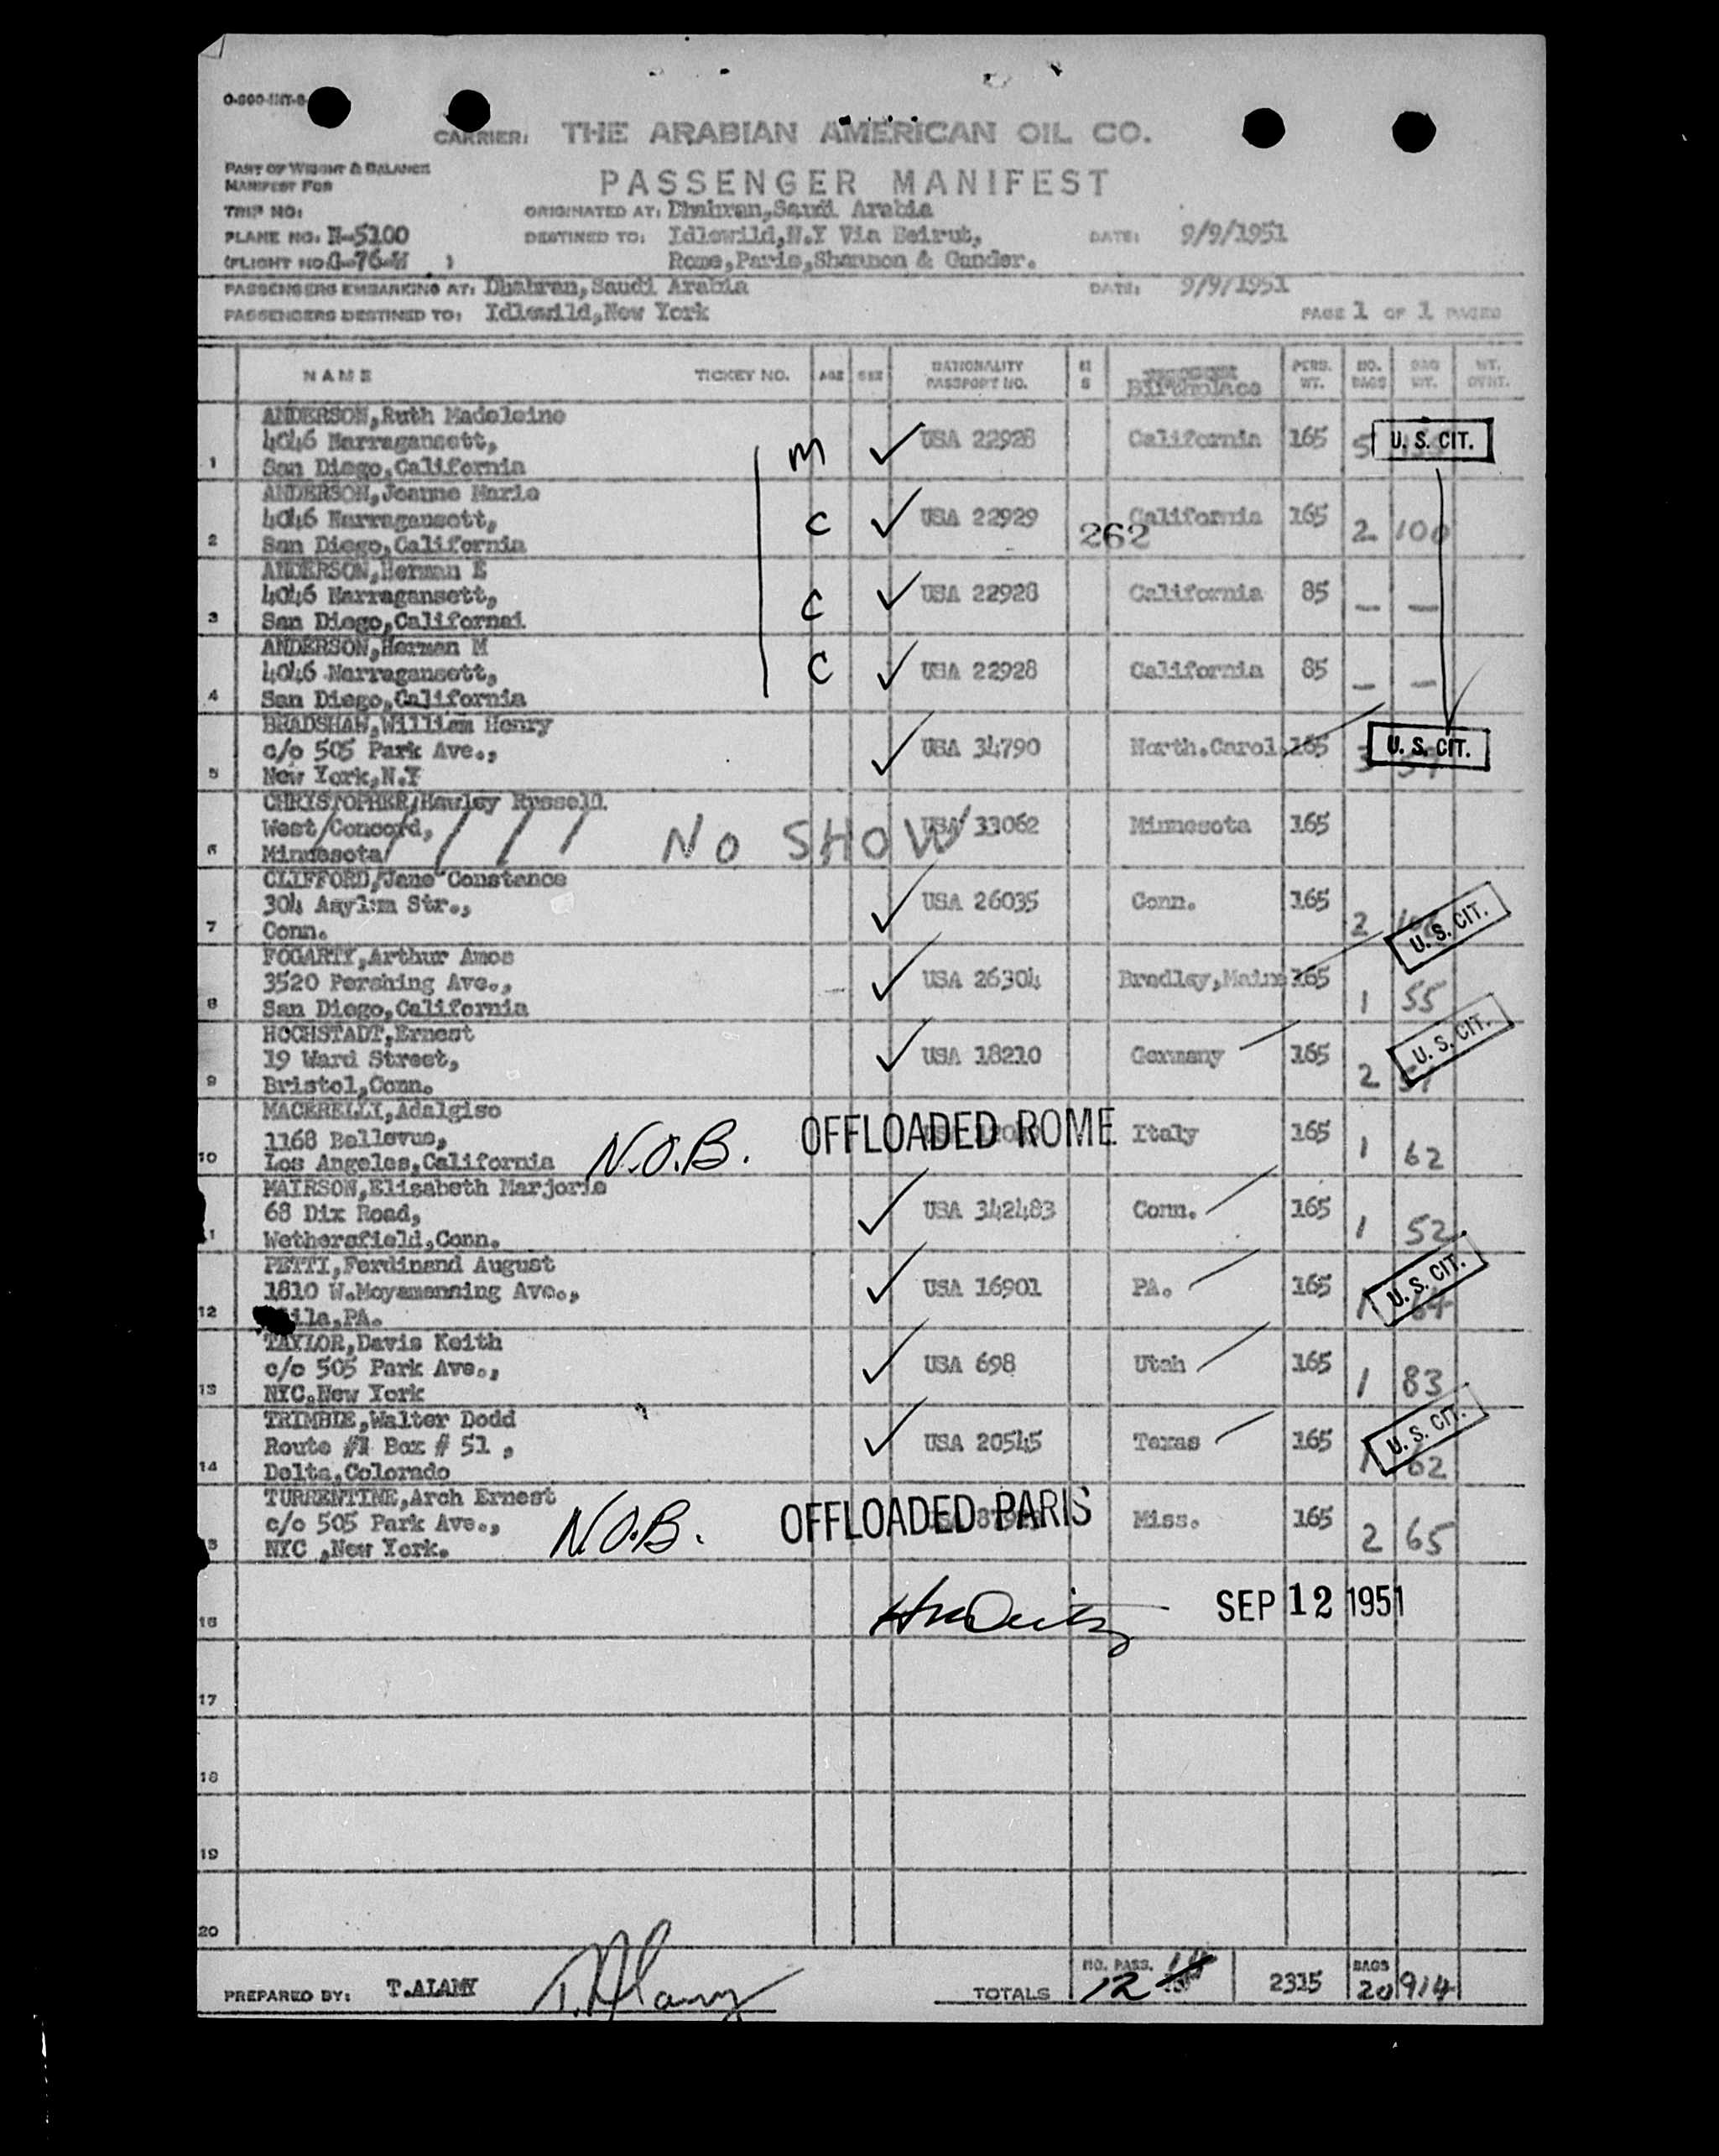 0-800-INT-6
CARRIER: THE ARABIAN AMERICAN OIL CO.
PART OF WEIGHT & BALANCE
MANIFEST FOR
PASSENGER MANIFEST
TRIP NO: ORIGINATED AT: Dhahran,Saudi Arabia
PLANE NO: N-5100 DESTINED TO: Idlewild,N.Y Via Beirut, DATE: 9/9/1951
(FLIGHT NO.G-76-W ) Rome,Paris,Shannon & Gander.
PASSENGERS EMBARKING AT: Dhahran,Saudi Arabia DATE: 9/9/1951
PASSENGERS DESTINED TO: Idlewild,New York PAGE 1 OF 1 PAGES
NAME TICKET NO. AGE SEX NATIONALITY PASSPORT NO. Birthplace PERS. WT. NO. BAGS BAG WT. WT. OVHT.
ANDERSON,Ruth Madeleine
4046 Narragansett, M ✓ USA 22928 California 165 5 U. S. CIT.
1 San Diego,California
ANDERSON,Joanne Marie
4046 Narragansett, C ✓ USA 22929 262 California 165 2 100
2 San Diego,California
ANDERSON,Herman E
4046 Narragansett, C ✓ USA 22928 California 85 — —
3 San Diego,Californai
ANDERSON,Herman M
4046 Narragansett, C ✓ USA 22928 California 85 — —
4 San Diego,California
BRADSHAW,William Henry
c/o 505 Park Ave., ✓ USA 34790 North.Carol 165 3 U. S. CIT.
5 New York,N.Y
CHRYSTOPHER,Hawley Russell.
West Concord, NO SHOW USA 33062 Minnesota 165
6 Minnesota
CLIFFORD,Jane Constance
304 Asylum Str., ✓ USA 26035 Conn. 165 2 U. S. CIT.
7 Conn.
FOGARTY,Arthur Amos
3520 Pershing Ave., ✓ USA 26304 Bradley,Maine 165 1 55
8 San Diego,California
HOCHSTADT,Ernest
19 Ward Street, ✓ USA 18210 Germany 165 2 U. S. CIT.
9 Bristol,Conn.
MACERELLI,Adalgiso
1168 Bellevue, N.O.B. OFFLOADED ROME Italy 165 1 62
10 Los Angeles,California
MAIRSON,Elisabeth Marjorie
68 Dix Road, ✓ USA 342483 Conn. 165 1 52
11 Wethersfield,Conn.
PETTI,Ferdinand August
1810 W.Moyamensing Ave., ✓ USA 16901 PA. 165 1 64 U. S. CIT.
12 Phila,PA.
TAYLOR,Davis Keith
c/o 505 Park Ave., ✓ USA 698 Utah 165 1 83
13 NYC.New York
TRIMBLE,Walter Dodd
Route #1 Box # 51 , ✓ USA 20545 Texas 165 1 62 U. S. CIT.
14 Delta,Colorado
TURRENTINE,Arch Ernest
c/o 505 Park Ave., N.O.B. OFFLOADED PARIS Miss. 165 2 65
15 NYC ,New York.
SEP 12 1951
16
17
18
19
20
PREPARED BY: T.ALAMY T. Alamy TOTALS NO. PASS. 12 2315 BAGS 20 914